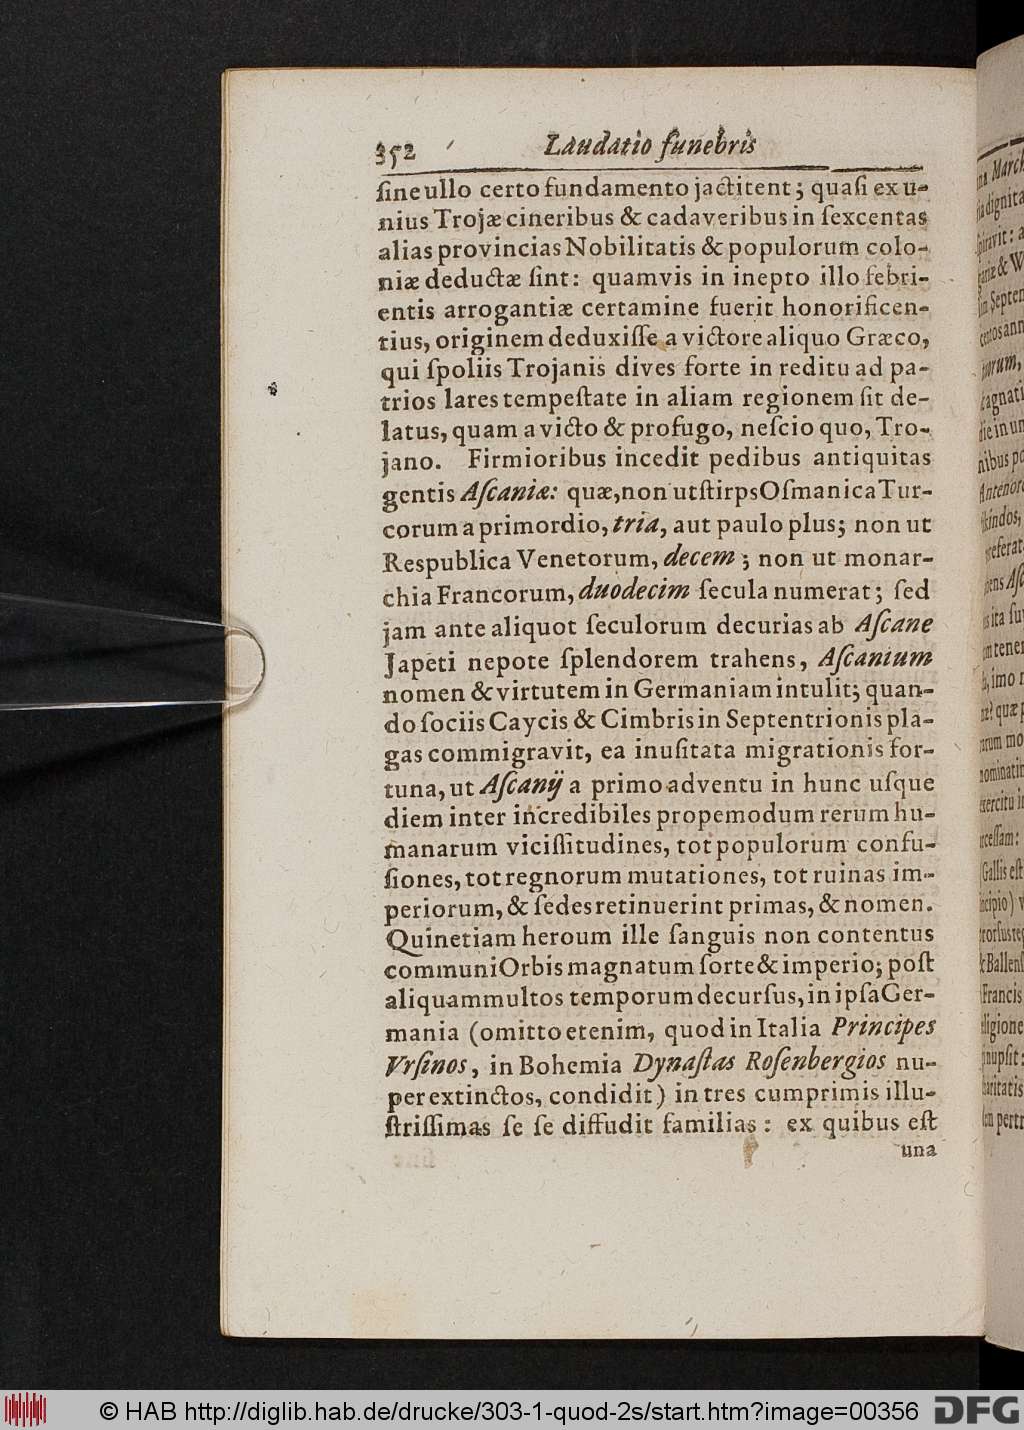 352 Laudatio funebris
ſine ullo certo fundamento jactitent; quaſi ex u-
nius Trojæ cineribus & cadaveribus in ſexcentas
alias provincias Nobilitatis & populorum colo-
niæ deductæ ſint: quamvis in inepto illo febri-
entis arrogantiæ certamine fuerit honorificen-
tius, originem deduxiſſe a victore aliquo Græco,
qui ſpoliis Trojanis dives forte in reditu ad pa-
trios lares tempeſtate in aliam regionem ſit de-
latus, quam a victo & profugo, neſcio quo, Tro-
jano. Firmioribus incedit pedibus antiquitas
gentis Aſcaniæ: quæ, non ut ſtirps Oſmanica Tur-
corum a primordio, tria, aut paulo plus; non ut
Respublica Venetorum, decem; non ut monar-
chia Francorum, duodecim ſecula numerat; ſed
jam ante aliquot ſeculorum decurias ab Aſcane
Japeti nepote ſplendorem trahens, Aſcanium
nomen & virtutem in Germaniam intulit; quan-
do ſociis Caycis & Cimbris in Septentrionis pla-
gas commigravit, ea inuſitata migrationis for-
tuna, ut Aſcanij a primo adventu in hunc uſque
diem inter incredibiles propemodum rerum hu-
manarum viciſſitudines, tot populorum confu-
ſiones, tot regnorum mutationes, tot ruinas im-
periorum, & ſedes retinuerint primas, & nomen.
Quinetiam heroum ille ſanguis non contentus
communi Orbis magnatum ſorte & imperio; poſt
aliquammultos temporum decurſus, in ipſa Ger-
mania (omitto etenim, quod in Italia Principes
Vrſinos, in Bohemia Dynaſtas Roſenbergios nu-
per extinctos, condidit) in tres cumprimis illu-
ſtriſſimas ſe ſe diffudit familias: ex quibus eſt
una
© HAB http://diglib.hab.de/drucke/303-1-quod-2s/start.htm?image=00356
DFG